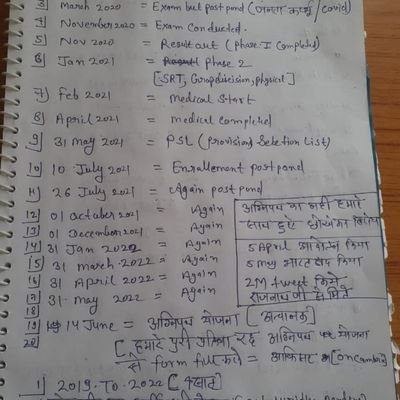 3) March 2020 = Exam but postpond (जनता कर्फ्यू/covid)
4) November 2020 = Exam conducted.
5) Nov 2020 = Result out (Phase-I Completed)
6) Jan 2021 = Phase 2
[SRT, Group discission, physical]
7) Feb 2021 = medical start
8) April 2021 = medical completed
9) 31 May 2021 = PSL (provision Seletion List)
10) 10 July 2021 = Enrallement postpond
11) 26 July 2021 = Again postpond
12) 01 october 2021 = Again
13) 01 December 2021 = Again
14) 31 Jan 2022 = Again
15) 31 march 2022 = Again
16) 31 April 2022 = Again
17) 31 may 2022 = Again
अग्निपथ का नहीं हमारे
साथ हुए धोखे का विरोध
5 April आंदोलन किया
5 may भारत बंद किया
2M tweet किये
राजनाथ जी से मिले
18)
19) 14 June = अग्निपथ योजना [अचानक]
20 [हमारे पुरी प्रक्रिया रद्द अग्निपथ योजना
से form fill करो =
1) 2019-TO-2022 [